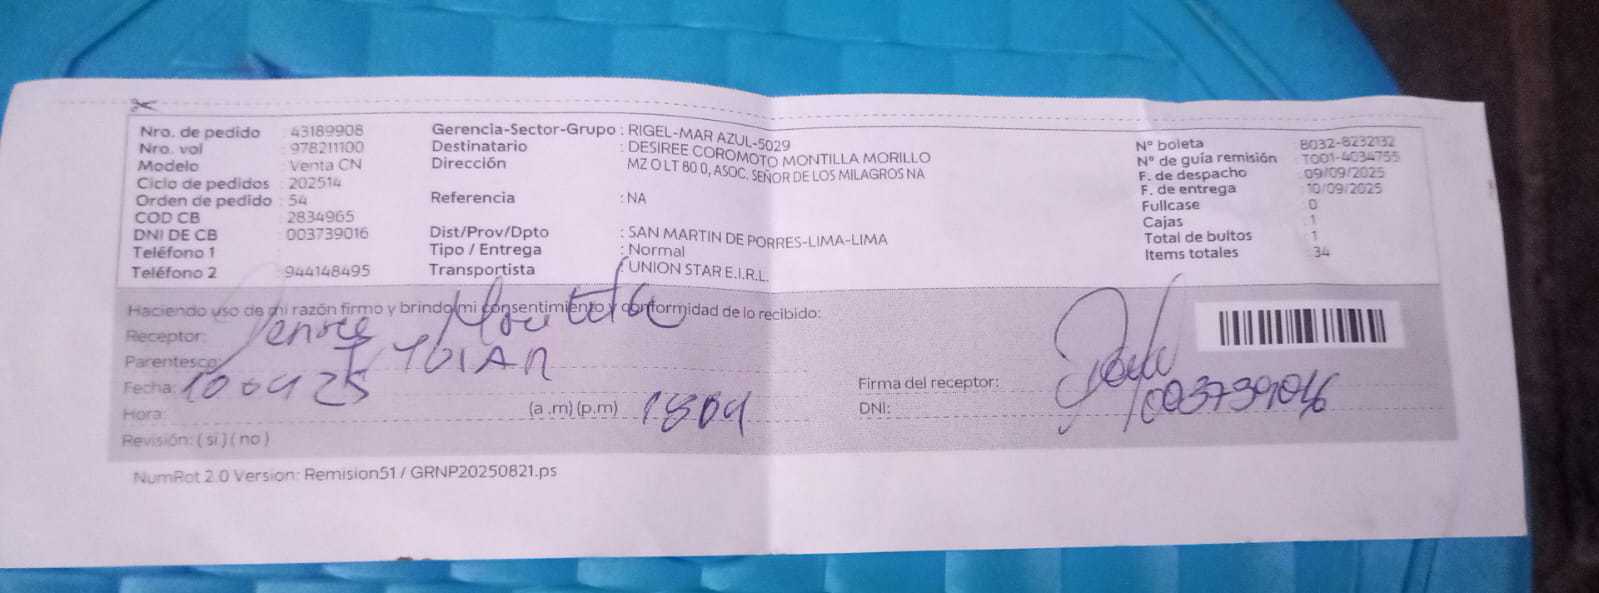 Nro. de pedido : 43189908
Nro. vol : 978211100
Modelo : Venta CN
Ciclo de pedidos : 202514
Orden de pedido : 54
COD CB : 2834965
DNI DE CB : 003739016
Teléfono 1 :
Teléfono 2 : 944148495
Gerencia-Sector-Grupo : RIGEL-MAR AZUL-5029
Destinatario : DESIREE COROMOTO MONTILLA MORILLO
Dirección MZ O LT 80 0, ASOC. SEÑOR DE LOS MILAGROS NA
Referencia : NA
Dist/Prov/Dpto : SAN MARTIN DE PORRES-LIMA-LIMA
Tipo / Entrega : Normal
Transportista : UNION STAR E.I.R.L.
N° boleta : B032-8232132
N° de guía remisión : T001-4034755
F. de despacho : 09/09/2025
F. de entrega : 10/09/2025
Fullcase : 0
Cajas : 1
Total de bultos : 1
Items totales : 34
Haciendo uso de mi razón firmo y brindo mi consentimiento y conformidad de lo recibido:
Receptor:
Parentesco:
Fecha: 100925
Hora: (a .m) (p.m) 1809
Revisión: ( si ) ( no )
Firma del receptor:
DNI: 003739016
NumRot 2.0 Version: Remision51 / GRNP20250821.ps